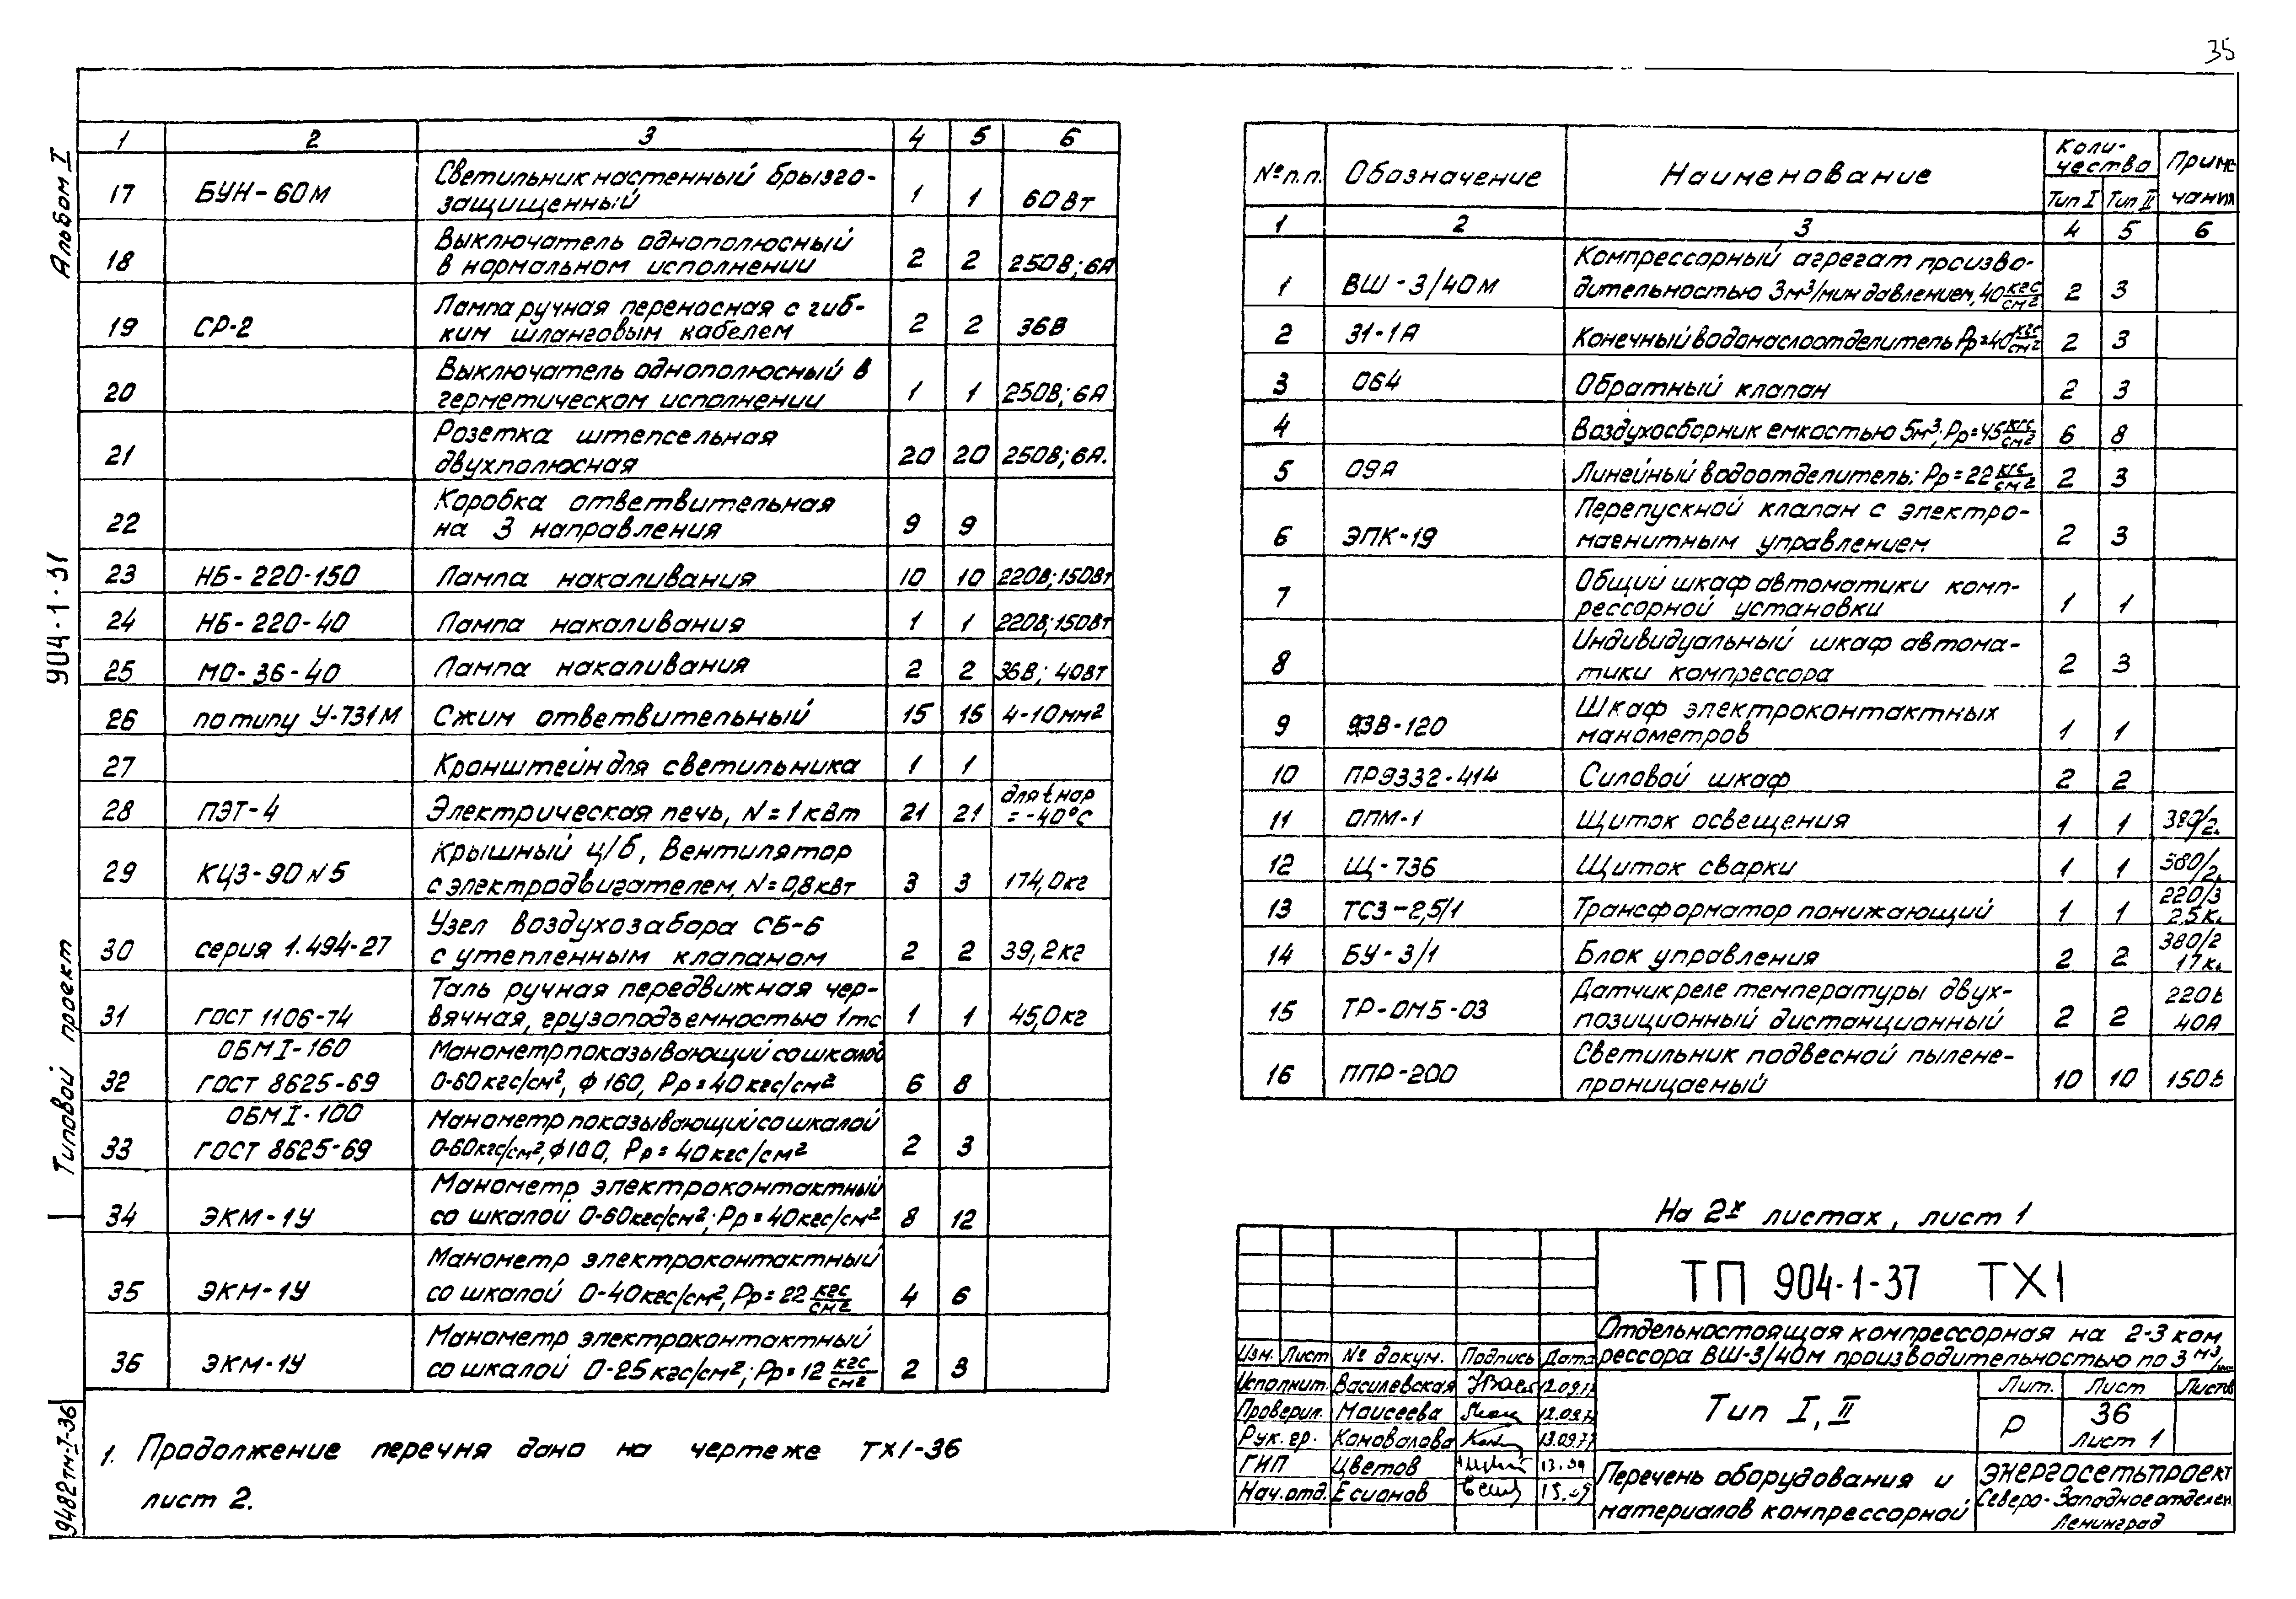 35
Альбом I
904-1-31
Типовой проект
9482тм-I-36
1 2 3 4 5 6
17 БУН-60М Светильник настенный брызго-
защищенный 1 1 60Вт
18 Выключатель однополюсный
в нормальном исполнении 2 2 250В; 6А
19 СР-2 Лампа ручная переносная с гиб-
ким шланговым кабелем 2 2 36В
20 Выключатель однополюсный в
герметическом исполнении 1 1 250В; 6А
21 Розетка штепсельная
двухполюсная 20 20 250В; 6А.
22 Коробка ответвительная
на 3 направления 9 9
23 НБ-220-150 Лампа накаливания 10 10 220В; 150Вт
24 НБ-220-40 Лампа накаливания 1 1 220В; 150Вт
25 МО-36-40 Лампа накаливания 2 2 36В; 40Вт
26 по типу У-731М Сжим ответвительный 15 15 4-10мм²
27 Кронштейн для светильника 1 1
28 ПЭТ-4 Электрическая печь, N=1кВт 21 21 для t нар
= -40°С
29 КЦ3-90 N5 Крышный ц/б, Вентилятор
с электродвигателем, N=0,8кВт 3 3 174,0кг
30 серия 1.494-27 Узел воздухозабора СБ-6
с утепленным клапаном 2 2 39,2кг
31 ГОСТ 1106-74 Таль ручная передвижная чер-
вячная, грузоподъемностью 1тс 1 1 45,0кг
32 ОБМ I-160 Манометр показывающий со шкалой
ГОСТ 8625-69 0-60кгс/см², ф 160, Рр=40кгс/см² 6 8
33 ОБМ I-100 Манометр показывающий со шкалой
ГОСТ 8625-69 0-60кгс/см², ф 100, Рр=40кгс/см² 2 3
34 ЭКМ-1У Манометр электроконтактный
со шкалой 0-60кгс/см²; Рр=40кгс/см² 8 12
35 ЭКМ-1У Манометр электроконтактный
со шкалой 0-40кгс/см², Рр=22 кгс/см² 4 6
36 ЭКМ-1У Манометр электроконтактный
со шкалой 0-25кгс/см²; Рр=12 кгс/см² 2 3
1. Продолжение перечня дано на чертеже ТХ1-36
лист 2.
№ п.п. Обозначение Наименование Коли-
чество Приме
Тип I Тип II чания
1 2 3 4 5 6
1 ВШ-3/40М Компрессорный агрегат произво-
дительностью 3м³/мин давлением, 40 кгс/см² 2 3
2 31-1А Конечный водомаслоотделитель Рр=40 кгс/см² 2 3
3 064 Обратный клапан 2 3
4 Воздухосборник емкостью 5м³; Рр=45 кгс/см² 6 8
5 09А Линейный водоотделитель; Рр=22 кгс/см² 2 3
6 ЭПК-19 Перепускной клапан с электро-
магнитным управлением 2 3
7 Общий шкаф автоматики комп-
рессорной установки 1 1
8 Индивидуальный шкаф автома-
тики компрессора 2 3
9 93В-120 Шкаф электроконтактных
манометров 1 1
10 ПР9332-414 Силовой шкаф 2 2
11 ОПМ-1 Щиток освещения 1 1 380/2
12 Щ-736 Щиток сварки 1 1 380/2
13 ТСЗ-2,5/1 Трансформатор понижающий 1 1 220/3
2,5к
14 БУ-3/1 Блок управления 2 2 380/2
17к
15 ТР-ОМ5-03 Датчик реле температуры двух-
позиционный дистанционный 2 2 220В
40А
16 ППР-200 Светильник подвесной пылене-
проницаемый 10 10 150В
На 2х листах, лист 1
ТП 904-1-37 ТХ1
Отдельностоящая компрессорная на 2-3 ком
рессора ВШ-3/40м производительностью по 3 м³/
Изм. Лист № докум. Подпись Дата
Исполнит. Василевская 12.09.77
Проверил. Моисеева 12.09.77
Рук. гр. Коновалова 13.09.77
ГИП Цветов 13.09
Нач. отд. Есионов 13.09
Тип I, II
Лит. Лист Листов
Р 36
лист 1
Перечень оборудования и
материалов компрессорной
ЭНЕРГОСЕТЬПРОЕКТ
Северо-Западное отделен
Ленинград